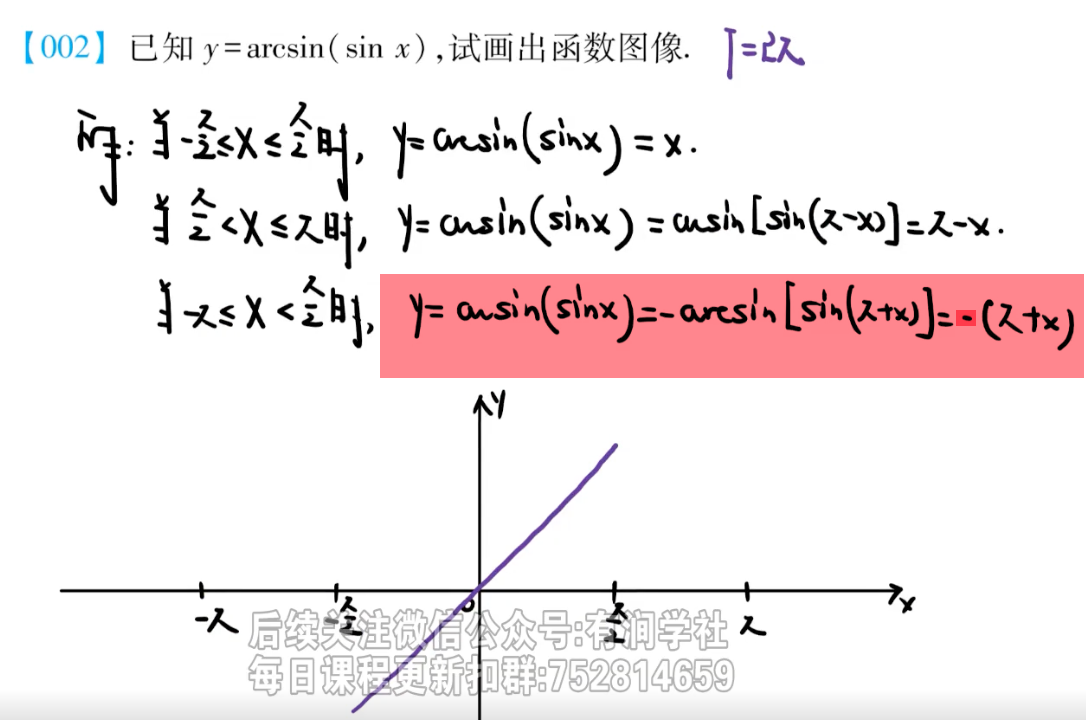 【002】已知 y=arcsin(sin x),试画出函数图像. T=2π
解: 当 -π/2≤x≤π/2时, y=arcsin(sinx)=x.
当 π/2<x≤π时, y=arcsin(sinx)=arcsin[sin(π-x)]=π-x.
当 -π≤x<π/2时, y=arcsin(sinx)=-arcsin[sin(π+x)]=-(π+x)
y
-π -π/2 0 π/2 π x
后续关注微信公众号:有润学社
每日课程更新扣群:752814659